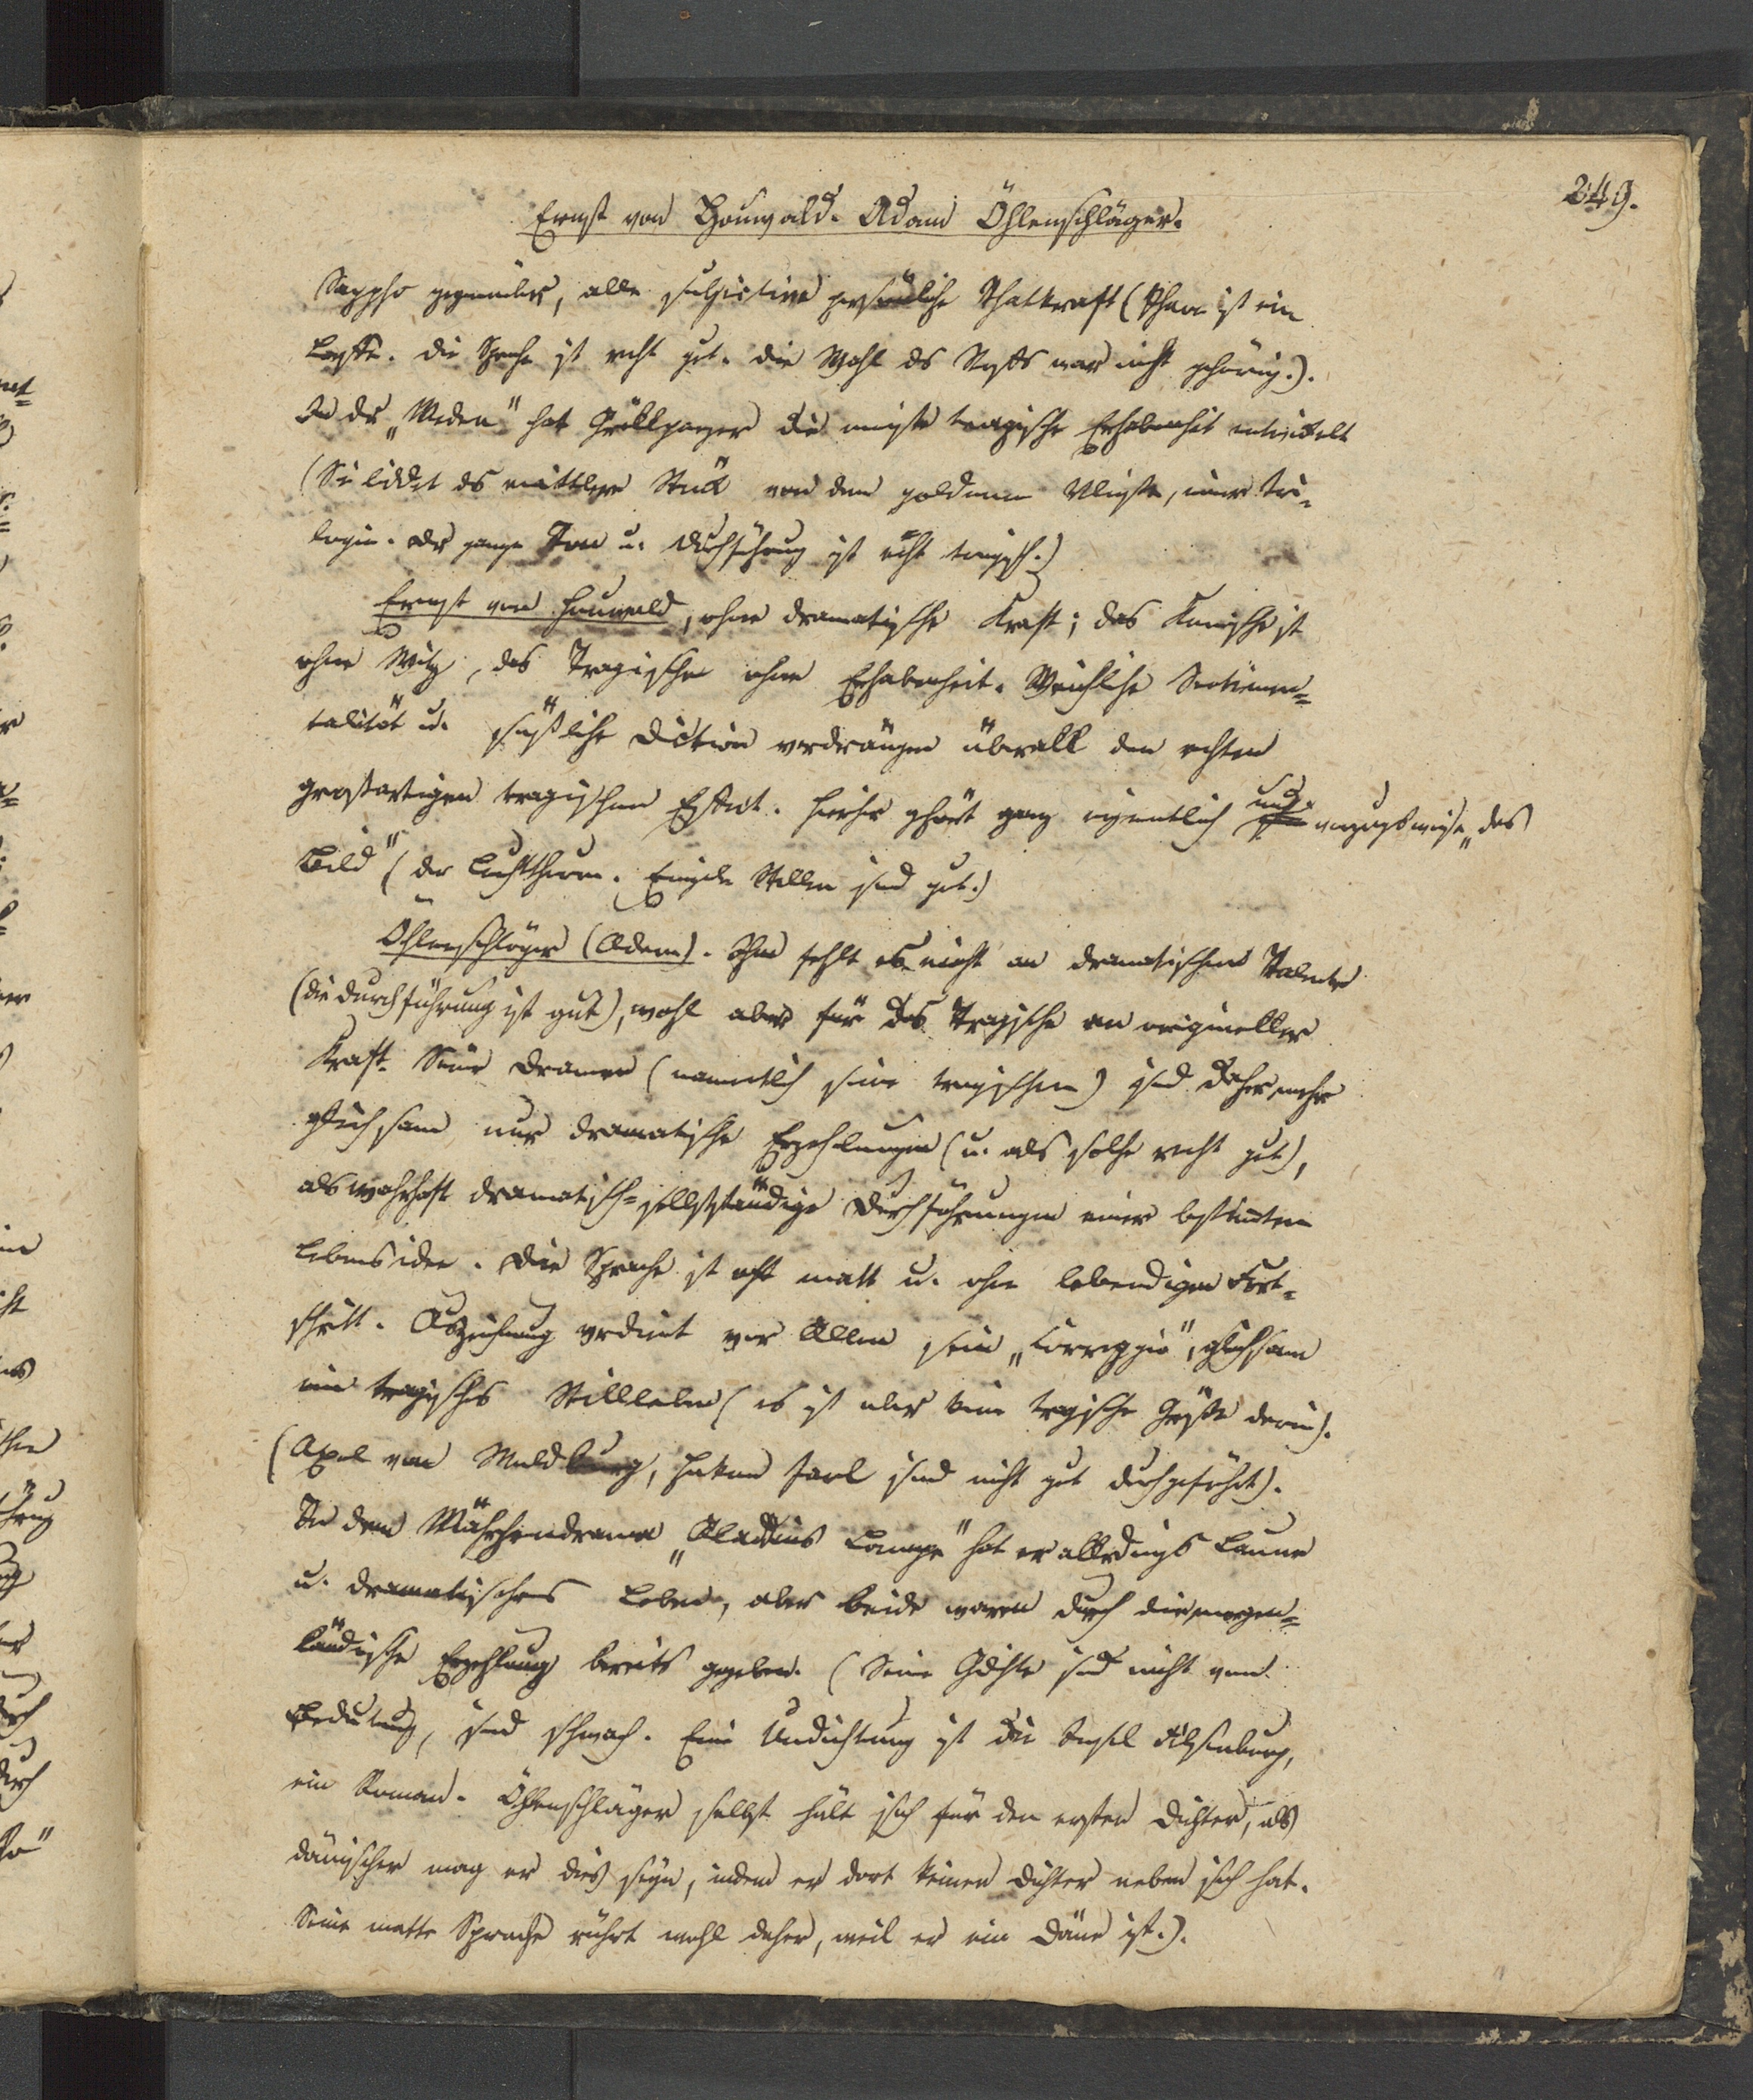 249.
Ernst von Houwald. Adam Öhlenschläger.
Sappho gegenüber, alle subjective persönliche Thatkraft (Phaon ist ein
Laffe. Die Sprache ist recht gut. Die Wahl des Stoffs war nicht gehörig.).
In der „Medea" hat Grillparzer die meiste tragische Erhabenheit entwickelt
(Sie bildet das mittlere Stück von dem goldenen Vließe, einer Tri-
logie. Der ganze Ton u. Durchführung ist ächt tragisch.)
Ernst von Houwald, ohne dramatische Kraft; das Komische ist
ohne Witz, das Tragische ohne Erhabenheit. Weichliche Sentimen-
talität u. süßliche Diction verdrängen überall den echten
großartigen tragischen Effect. Hierher gehört ganz eigentlich und vorzugsweise „das
Bild" (der Leuchtthurm. Einzelne Stellen sind gut.)
Öhlenschläger (Adam). Ihm fehlt es nicht an dramatischem Talente
(die Durchführung ist gut), wohl aber für das Tragische an origineller
Kraft. Seine Dramen (namentlich seine tragischen) sind daher mehr
gleichsam nur dramatische Erzehlungen (u. als solche recht gut),
als wahrhaft dramatisch-selbstständige Durchführungen einer bestimmten
Lebensidee. Die Sprache ist oft matt u. ohne lebendigen Fort-
schritt. Auszeichnung verdient vor Allem sein „Correggio", gleichsam
ein tragisches Stillleben (es ist aber keine tragische Größe darin).
(Axel von Waldburg, Hakon Jarl sind nicht gut durchgeführt).
In dem Mährchendrama „Aladdins Lampe" hat er allerdings Laune
u. dramatisches Leben, aber beide waren durch die morgen-
ländische Erzehlung bereits gegeben. (Seine Gedichte sind nicht von
Bedeutung, sind schwach. Eine Umdichtung ist die Insel Felsenburg,
ein Roman. Öhlenschläger selbst hält sich für den ersten Dichter, als
dänischer mag er dies seyn, indem er dort keinen Dichter neben sich hat.
Seine matte Sprache rührt wohl daher, weil er ein Däne ist.).